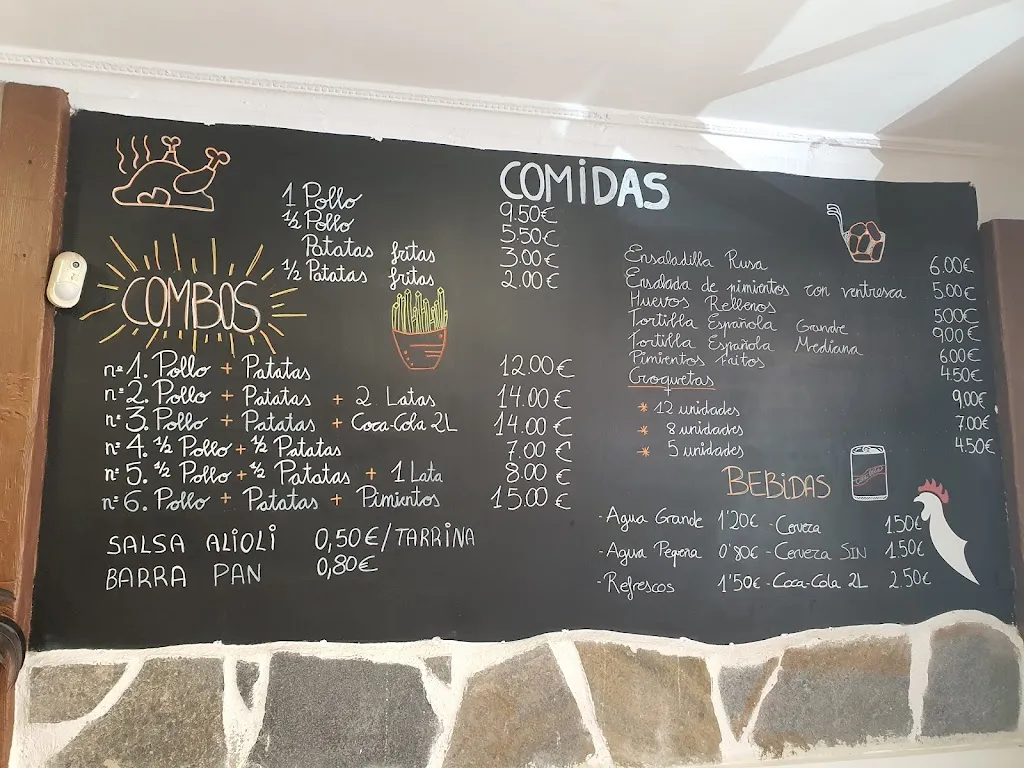 COMiDAS
1 Pollo 9.50€
½ Pollo 5.50€
Patatas fritas 3.00€
½ Patatas fritas 2.00€
COMBOS
nº 1. Pollo + Patatas 12.00€
nº 2. Pollo + Patatas + 2 Latas 14.00€
nº 3. Pollo + Patatas + Coca-Cola 2L 14.00€
nº 4. ½ Pollo + ½ Patatas 7.00€
nº 5. ½ Pollo + ½ Patatas + 1 Lata 8.00€
nº 6. Pollo + Patatas + Pimientos 15.00€
SALSA ALiOLi 0,50€/TARRiNA
BARRA PAN 0,80€
Ensaladilla Rusa 6.00€
Ensalada de pimientos con ventresca 5.00€
Huevos Rellenos 5.00€
Tortilla Española Grande 9.00€
Tortilla Española Mediana 6.00€
Pimientos Fritos 4.50€
Croquetas
* 12 unidades 9.00€
* 8 unidades 7.00€
* 5 unidades 4.50€
BEBiDAS
- Agua Grande 1'20€ - Cerveza 1.50€
- Agua Peqena 0'80€ - Cerveza SIN 1.50€
- Refrescos 1'50€ - Coca-Cola 2L 2.50€